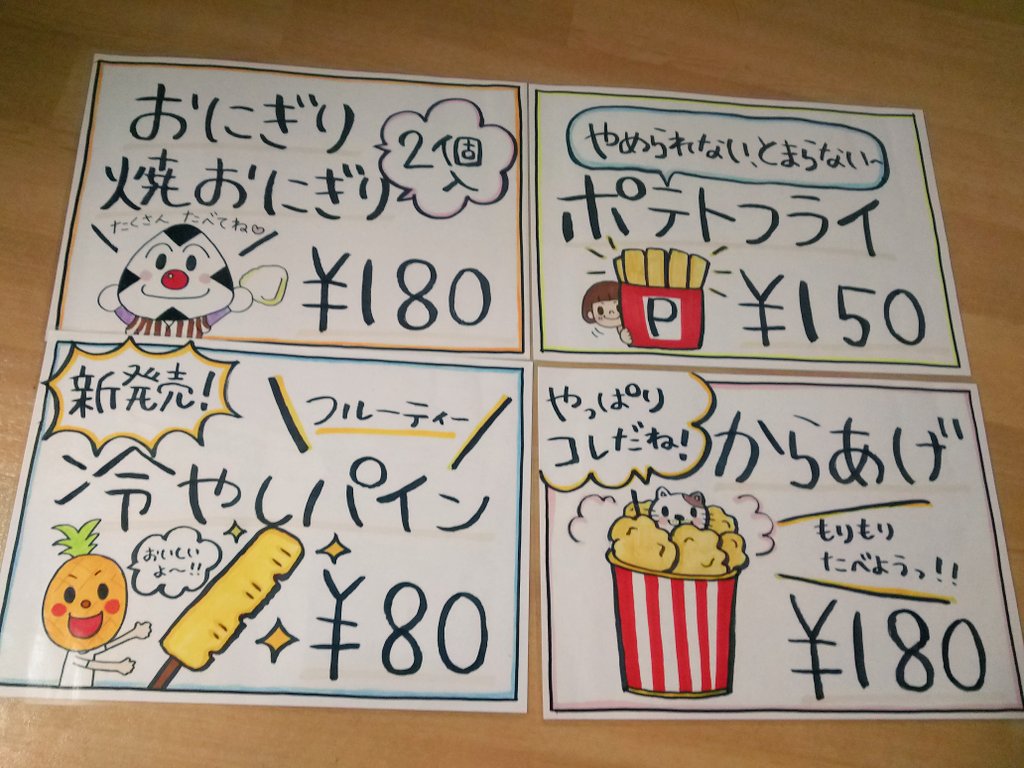 おにぎり
焼おにぎり
2個
入
たくさん たべてね♡
¥180
やめられない、とまらない〜
ポテトフライ
P
¥150
新発売!
フルーティー
冷やしパイン
おいしい
よ〜!!
¥80
やっぱり
コレだね!
からあげ
もりもり
たべようっ!!
¥180